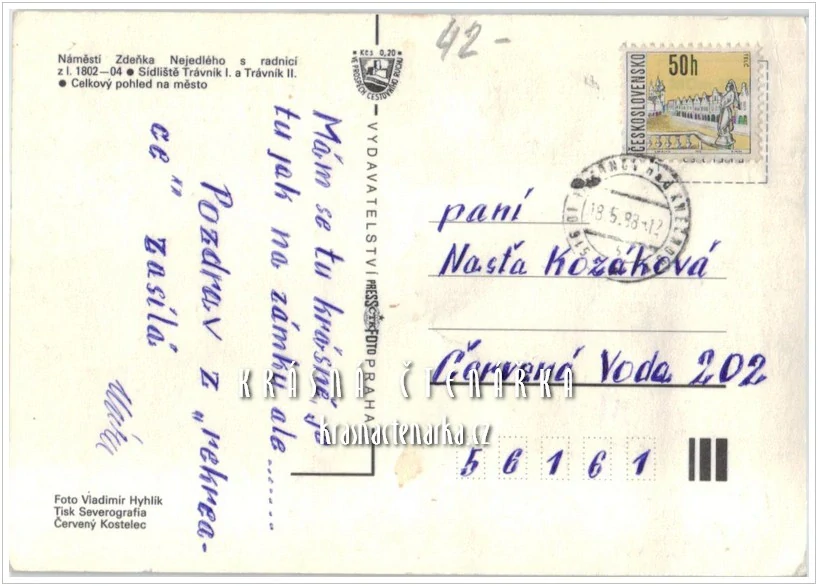 42-
Náměstí Zdeňka Nejedlého s radnicí
z l. 1802—04 ● Sídliště Trávník I. a Trávník II.
● Celkový pohled na město
Kčs 0,20
VE PROSPĚCH CESTOVNÍHO RUCHU
VYDAVATELSTVÍ PRESSFOTO PRAHA
ČTK
ČESKOSLOVENSKO
50h
TELČ
516 01 nad KNĚŽNOU
18.5.88-12
Mám se tu krásně, je
tu jak na zámku ale........
Pozdrav z „rekrea-
ce" zasílá
paní
Nasťa Kozáková
Červená Voda 202
56161
KRÁSNÁ ČTENÁRKA
krasnactenarka.cz
Foto Vladimír Hyhlík
Tisk Severografia
Červený Kostelec